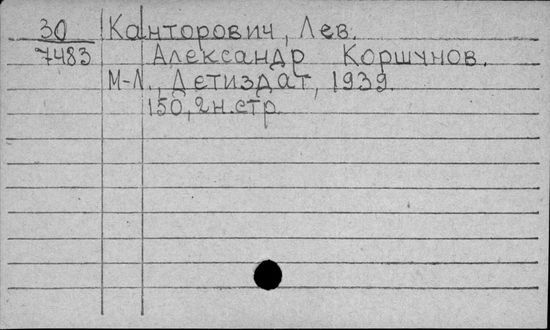 30 Канторович, Лев.
7483 Александр Коршунов.
М-Л., Детиздат, 1939.
150,2н.стр.